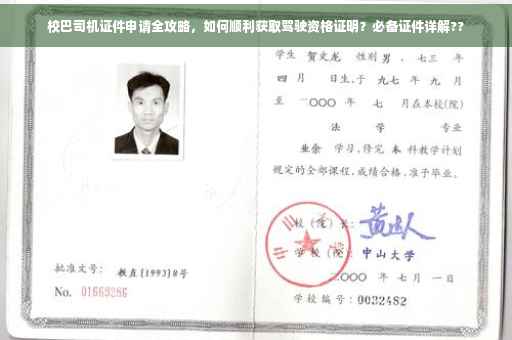 校巴司机证件申请全攻略，如何顺利获取驾驶资格证明？必备证件详解??
学生 贺文龙 性别 男 、七三 年
四 月 日生,于 九七 年 九 月
至 二〇〇〇 年 七 月在本校(院)
法 学 专业
业余 学习,修完 本 科教学计划
规定的全部课程,成绩合格,准予毕业。
校(院)长:
学校(院): 中山大学
二〇〇〇 年 七 月 一 日
学校编号: 0032482
批准文号: 教直[1993]8号
No. 01669286